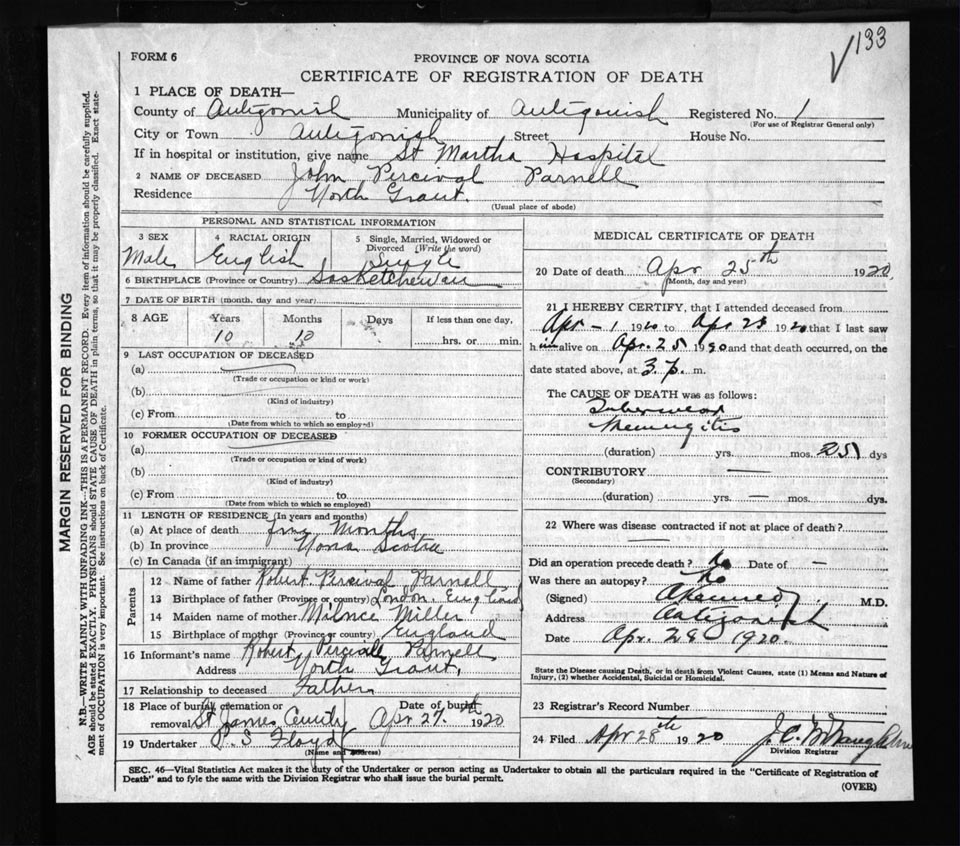 133
FORM 6
PROVINCE OF NOVA SCOTIA
CERTIFICATE OF REGISTRATION OF DEATH
1 PLACE OF DEATH—
County of Antigonish Municipality of Antigonish Registered No. 1
(For use of Registrar General only)
City or Town Antigonish Street House No.
If in hospital or institution, give name St Martha Hospital
2 NAME OF DECEASED John Percival Parnell
Residence North Grant.
(Usual place of abode)
MARGIN RESERVED FOR BINDING
N.B.—WRITE PLAINLY WITH UNFADING INK—THIS IS A PERMANENT RECORD. Every item of information should be carefully supplied.
AGE should be stated EXACTLY. PHYSICIANS should STATE CAUSE OF DEATH in plain terms, so that it may be properly classified. Exact state-
ment of OCCUPATION is very important. See instructions on back of Certificate.
PERSONAL AND STATISTICAL INFORMATION
3 SEX
Male
4 RACIAL ORIGIN
English
5 Single, Married, Widowed or
Divorced (Write the word)
Single
6 BIRTHPLACE (Province or Country) Sasketchewan
7 DATE OF BIRTH (month, day and year)
8 AGE Years Months Days If less than one day,
10 10 hrs. or min.
9 LAST OCCUPATION OF DECEASED
(a)
(Trade or occupation or kind or work)
(b)
(Kind of industry)
(c) From to
(Date from which to which so employed)
10 FORMER OCCUPATION OF DECEASED
(a)
(Trade or occupation or kind of work)
(b)
(Kind of industry)
(c) From to
(Date from which to which so employed)
11 LENGTH OF RESIDENCE (In years and months)
(a) At place of death Months
(b) In province Nova Scotia
(c) In Canada (if an immigrant)
Parents
12 Name of father Robert Percival Parnell
13 Birthplace of father (Province or country) London. England
14 Maiden name of mother Miller
15 Birthplace of mother (Province or country) England
16 Informant's name Robert Percival Parnell
Address North Grant,
17 Relationship to deceased Father
18 Place of burial, cremation or Date of burial
removal St James Apr 27th 1920
19 Undertaker P. S Floyd
(Name and address)
MEDICAL CERTIFICATE OF DEATH
20 Date of death Apr 25th 1920
(Month, day and year)
21 I HEREBY CERTIFY, that I attended deceased from
Apr - 1 1920 to Apr 1920 that I last saw
him alive on Apr. 25 1920 and that death occurred, on the
date stated above, at 3 p. m.
The CAUSE OF DEATH was as follows:
Tubercular
Meningitis
(duration) yrs. mos. 25 dys
CONTRIBUTORY —
(Secondary)
(duration) yrs. — mos. dys.
22 Where was disease contracted if not at place of death?
—
Did an operation precede death? No Date of —
Was there an autopsy? No
(Signed) M.D.
Address Antigonish
Date Apr. 28 1920.
State the Disease causing Death, or in death from Violent Causes, state (1) Means and Nature of
Injury, (2) whether Accidental, Suicidal or Homicidal.
23 Registrar's Record Number
24 Filed Apr 28th 1920
Division Registrar
SEC. 46—Vital Statistics Act makes it the duty of the Undertaker or person acting as Undertaker to obtain all the particulars required in the "Certificate of Registration of
Death" and to fyle the same with the Division Registrar who shall issue the burial permit.
(OVER)